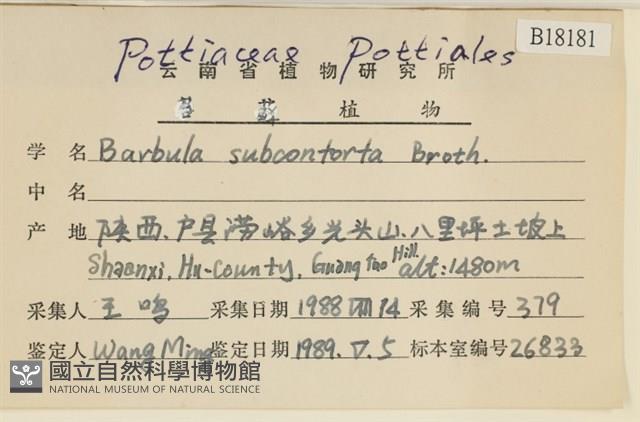 B18181
Pottiaceae Pottiales
云南省植物研究所
苔藓植物
学名 Barbula subcontorta Broth.
中名
产地 陕西、户县涝峪乡光头山、八里坪土坡上
Shaanxi, Hu-County, Guang Tao Hill alt: 1480m
采集人 王鸣 采集日期 1988 VIII 14 采集编号 379
鉴定人 Wang Ming 鉴定日期 1989. V. 5 标本室编号 26833
國立自然科學博物館
NATIONAL MUSEUM OF NATURAL SCIENCE